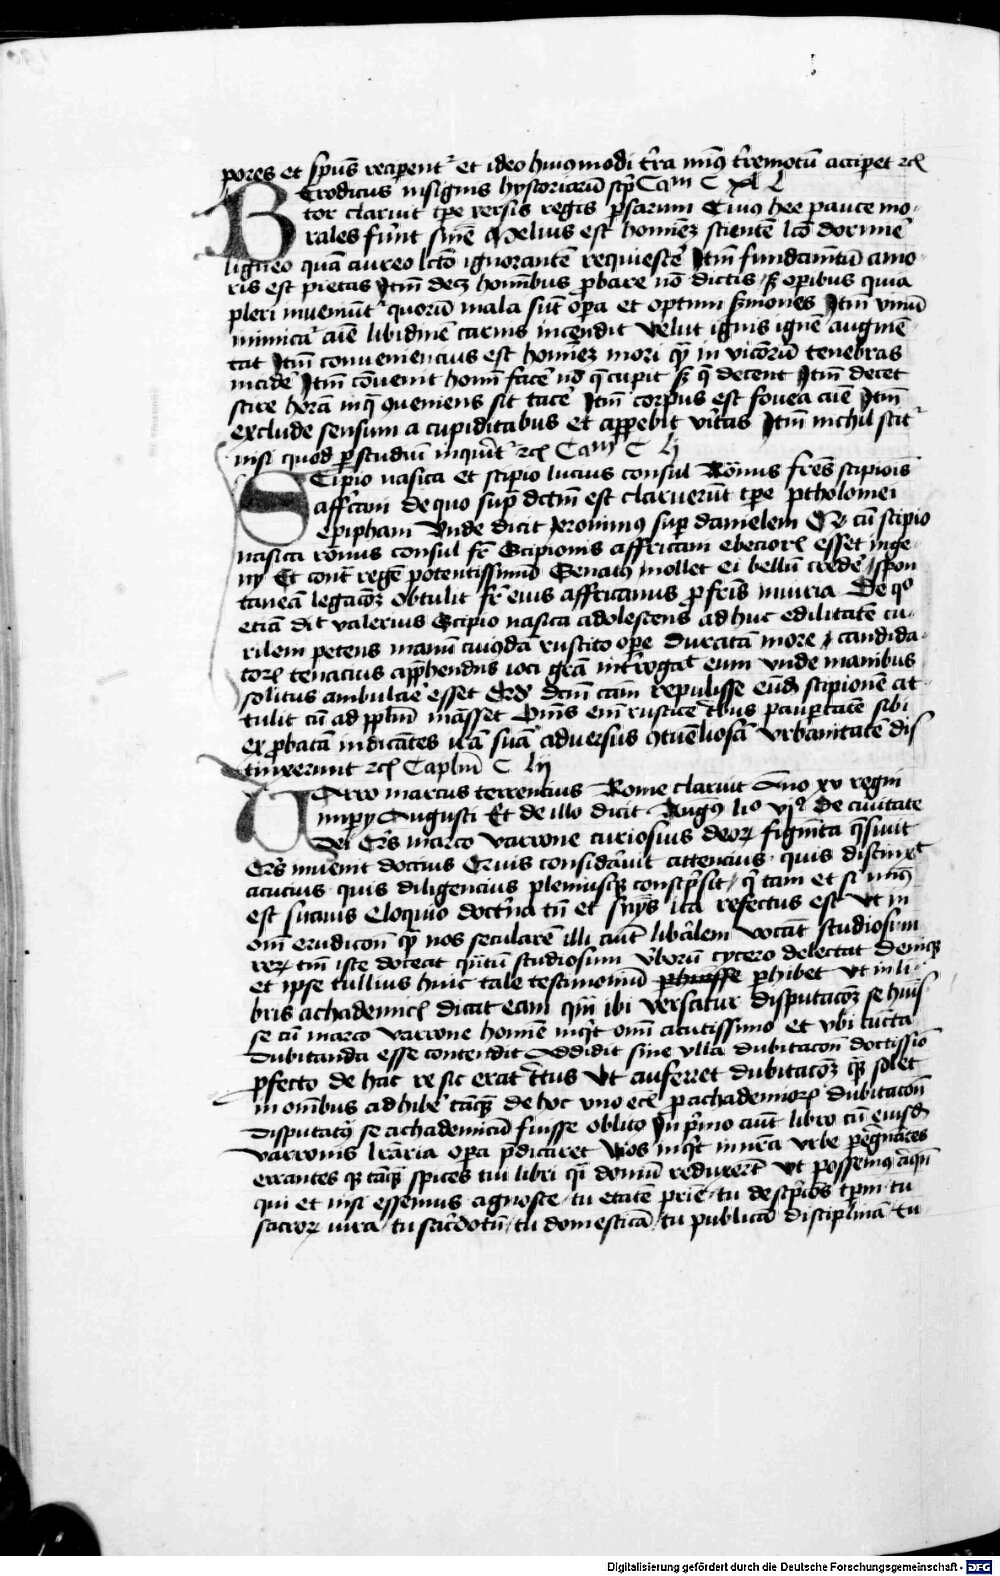 pores et spūs recipent᷑ et ideo huiusmodi t̄ra min9 t̄remotū accipet rc̄
Erodicus insignis hystoriarū sc̄p Cam C xl L
tor claruit tp̄e xersis regis persarum Cuius hee pauce mo-
rales fūnt sn̄ie Melius est hominē scientē sc̄o dormire
ligneo quā aureo lc̄to ignorantē requiescē Itm̄ fundamētū amo-
ris est pietas Itm̄ decz hominibus probare nō dictis sz operibus quia
pleri inueniūt᷑ quorū mala sūt opa et optimi sermones Itm̄ vinū
inimicat᷑ aīe libidinē carnis incendit velut ignis ignē augmē-
tat Itm̄ conueniencius est homiez mori qz̄ in viciorū tenebras
incidē Itm̄ cōuenit homī facē nō q̄ cupit sz q̄ decent Itm̄ decet
scire horā inq̄ queniens sit tacē Itm̄ corpus est fouea aīe Itm̄
exclude sensum a cupiditabus et apparebit vitas Itm̄ nichil scit᷑
nisi quod per studiū inquirit᷑ rc̄ Cam C lj
Scipio nasica et scipio lucius consul Romus fres scipiois
affricani de quo sup̄ dctm̄ est claruerūt tp̄e ptholomei
epiphani Unde dicit Jeronimus sup danielem Qd cū scipio
nasica romus consul fr̄ Scipionis affricani ebecior esset inge-
ny Et cont̄ regē potentissimū Senatus mollet ei bellū credē spon
taneā legacōez obtulit fr̄ eius affricanus p fris iniuria De qo
etiā dit valerius Scipio nasica adolescens ad huc edilitatē cu-
rilem petens manū cuiusdā rustico ope duratā more candida-
tor tenacius app̄hendns ioci grā int̄rogat eum unde manibus
solitus ambulare esset Qd dcm̄ cām repulisse eūd scipionē at-
tulit cū ad pplm̄ manasset Oms em̄ rustice t̄bus paupertatē sibi
ex probatā indicātes irā suā aduersus 9tueliosā vrbanitatē dis
tinxerunt rc̄ Caplm C lij
Uarro marcus terrencius Rome claruit Ano xv regni
impij Augusti Et de illo dicit Augus lio vjo De ciuitate
dei Qis marco varrone curiosius deor figm̄ta q̄siuit
Qis inuenit doccius Quis considauit attencius quis distinxit
acucius quis diligencius pleniusqz conscp̄sit q̄ tam et si min9
est suauis eloquio doct̄na tn̄ et snys ita refectus est vt in
oni erudicōn qz̄ nos secularē illi aūt libālem vocāt studiosum
rer tm̄ iste doceat qn̄tū studiosum v̄borū cycero delectat Deniqz
et ipse tullius huic tale testimoniū perhibet vt in li-
bris achademicis dicat eam qm̄ ibi versatur disputacōez se huis-
se cū marco varrone homīe inqt oīm acutissimo et vbi cūcta
dubitanda esse contendit Addidit sine vlla dubitacōn doctissio
pfecto de hac re sic erat c̄tus vt auferret dubitacōez qz̄ solet
in onibus adhibē tāqz̄ de hoc vno ecia p achademior dubitacōn
disputat9 se achademicū fuisse oblito In p̄mo aūt libro cū eiusd
varronis lrāria opa p̄dicaret Nos inqt in nr̄a vrbe peregnātes
errantes qz tāqz̄ hospites tui libri q̄i domū reduxerūt vt possem9 aliqn̄
qui et nisi essemus agnosce / tu etatē prie / tu descp̄cōs tpm / tu
sacror iura / tu sac̄dotū / tu domesticā / tu publicā disciplinā / tu
Digitalisierung gefördert durch die Deutsche Forschungsgemeinschaft - DFG